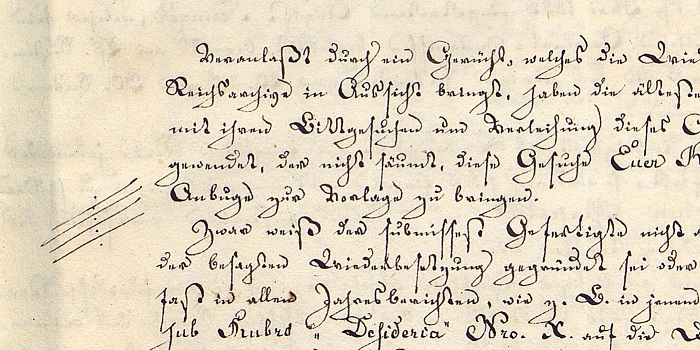 Veranlaßt durch ein Gerücht, welches die Wie
Reichsarchive in Aussicht bringt, haben die älteste
mit ihren Bittgesuchen um Verleihung dieses
gewendet, der nicht säumt, diese Gesuche Euer
Anbuge zur Vorlage zu bringen.
Zwar weiß der submissest Gefertigte nicht
der besagten Wiederbesetzung gegründet sei oder
fast in allen Jahresberichten, wie z. B. in jenem
sub Rubro "Desideria" Nro. X. auf die